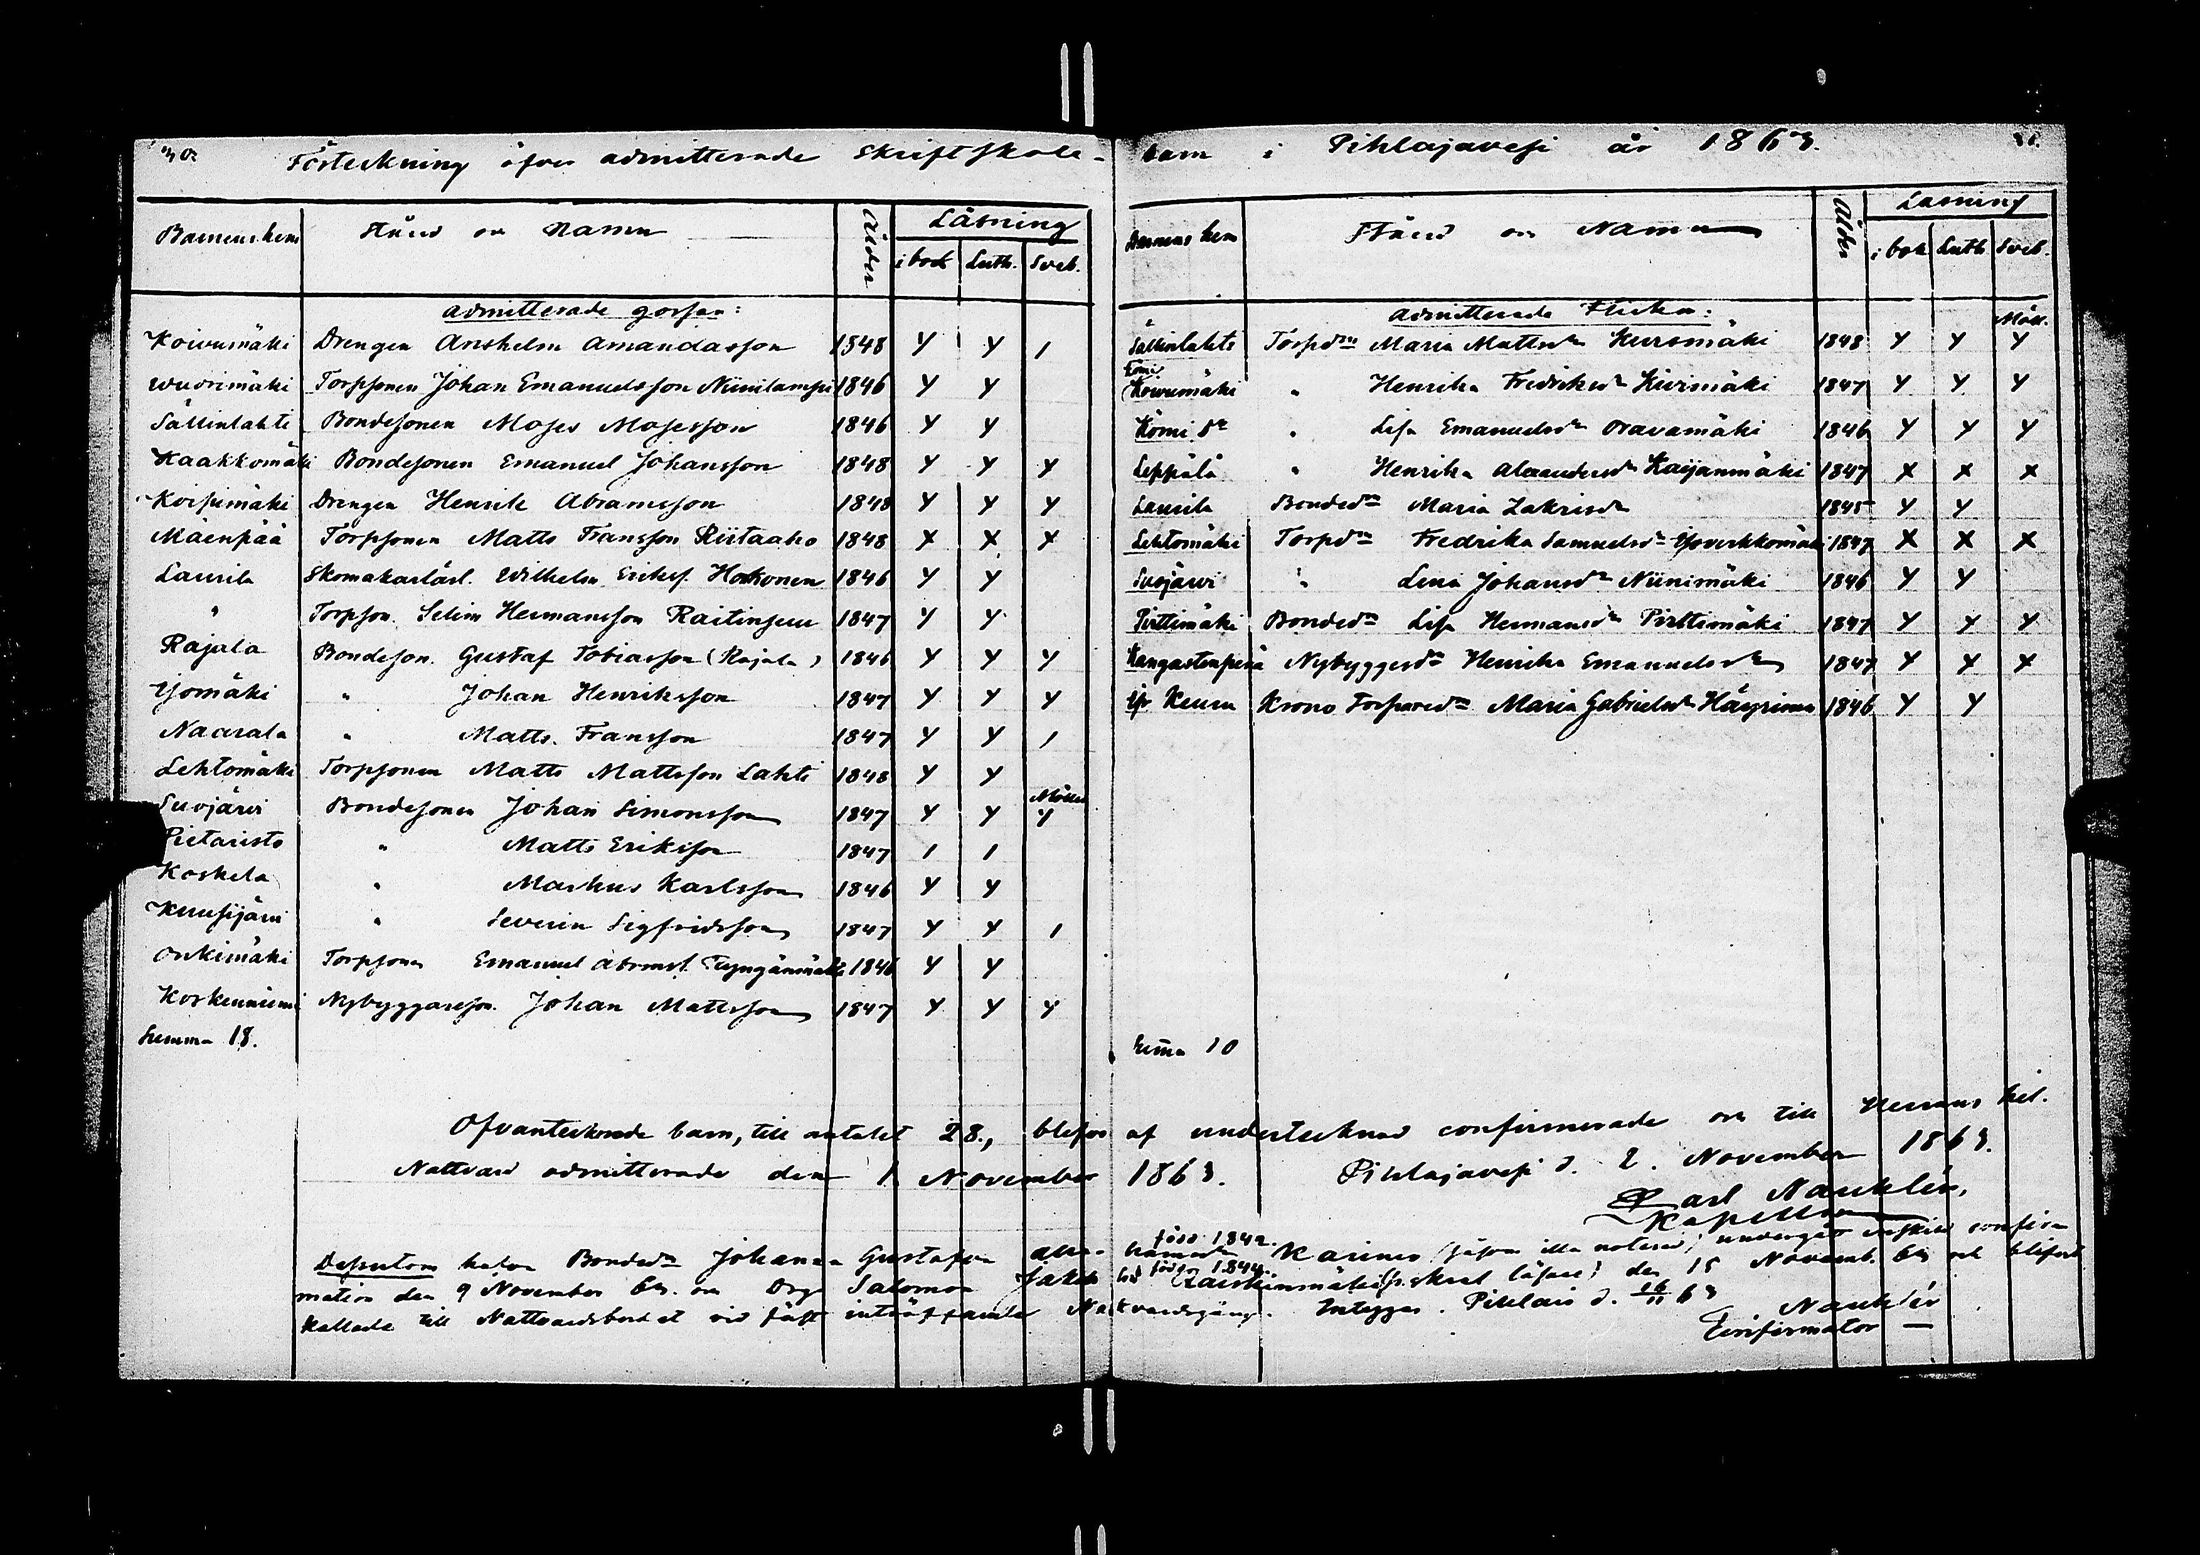 30.
Förteckning öfver admitterade Skriftskole-
Barnens hem Stånd och Namn Ålder Läsning
i bok Luth. Sveb.
admitterade gossar:
Koivumäki Drengen Anshelm Amandasson 1848 Y Y 1
Wuorimäki Torpsonen Johan Emanuelsson Niinilampi 1846 Y Y
Sällinlahti Bondesonen Moses Mosesson 1846 Y Y
Kaakkomäki Bondesonen Emanuel Johansson 1848 Y Y Y
Koipimäki Drengen Henrik Abramsson 1848 Y Y Y
Mäenpää Torpsonen Matts Fransson Riitaaho 1848 X X X
Laurila Skomakarlärl. Wilhelm Eriksf. Hokkonen 1846 Y Y
" Torpson. Selim Hermansson Raitinpers 1847 Y Y
Rajala Bondeson. Gustaf Tobiasson (Rajala) 1846 Y Y Y
Ijomäki " Johan Henriksson 1847 Y Y Y
Naarala " Matts Fransson 1847 Y Y 1
Lehtomäki Torpsonen Matts Mattsson Lahti 1848 Y Y
Suojärvi Bondesonen Johan Simonsson 1847 Y Y Möller Y
Pietaristo " Matts Eriksson 1847 1 1
Koskela " Markus Karlsson 1846 Y Y
Kuusijärvi " Severin Sigfridsson 1847 Y Y 1
Onkimäki Torpsonen Emanuel Abrmsf. 1846 Y Y
Koskenniemi Nybyggareson. Johan Mattsson 1847 Y Y Y
Summa 18.
barn i Pihlajavesi år 1863. 31.
Barnens hem Stånd och Namn Ålder Läsning
i bok Luth Sveb.
Admitterade Flickor:
Sällinlahti Torpdn Maria Mattsdr Kursmäki 1848 Y Y Möll. Y
Kömi
Koivumäki " Henrika Fredriksdr Kivimäki 1847 Y Y Y
Kömi dr " Lisa Emanuelsdr Oravamäki 1846 Y Y Y
Leppälä " Henrika Alexandersdr Kaijanmäki 1847 X X X
Laurila Bondedn Maria Zakrisdr 1845 Y Y
Lehtomäki Torpdn Fredrika Samuelsdr 1847 X X X
Suojärvi " Lena Johansdr Niinimäki 1846 Y Y
Pirttimäki Bondedn Lisa Hermansdr Pirttimäki 1847 Y Y Y
Kangastenperä Nybyggaredn Henrika Emanuelsdr 1847 Y X X
fr Keuru Krono Torparedn Maria Gabrielsdr Häyrinen 1846 Y Y
Summa 10
Ofvantecknade barn, till antalet 28., blefvo af undertecknad confirmerade och till Herrans hel.
Nattvard admitterade den 1. November 1863. Pihlajavesi d. 2. November 1863.
Carl Nauklér,
Kapellan
Dessutom hafva Bonded. Johanna Gustafva Karimo född 1842. (såsom illa noterad) undergått enskild confir-
mation den 9 November 63. och Drg Salomon Jakobs född 1844. den 15 Novemb. 63 och blifvit
kallade till Nattvardsbordet vid först inträffande Nattvardsgång. Intygas. Pihlais d. 16/11 63
Nauklér
Confirmator